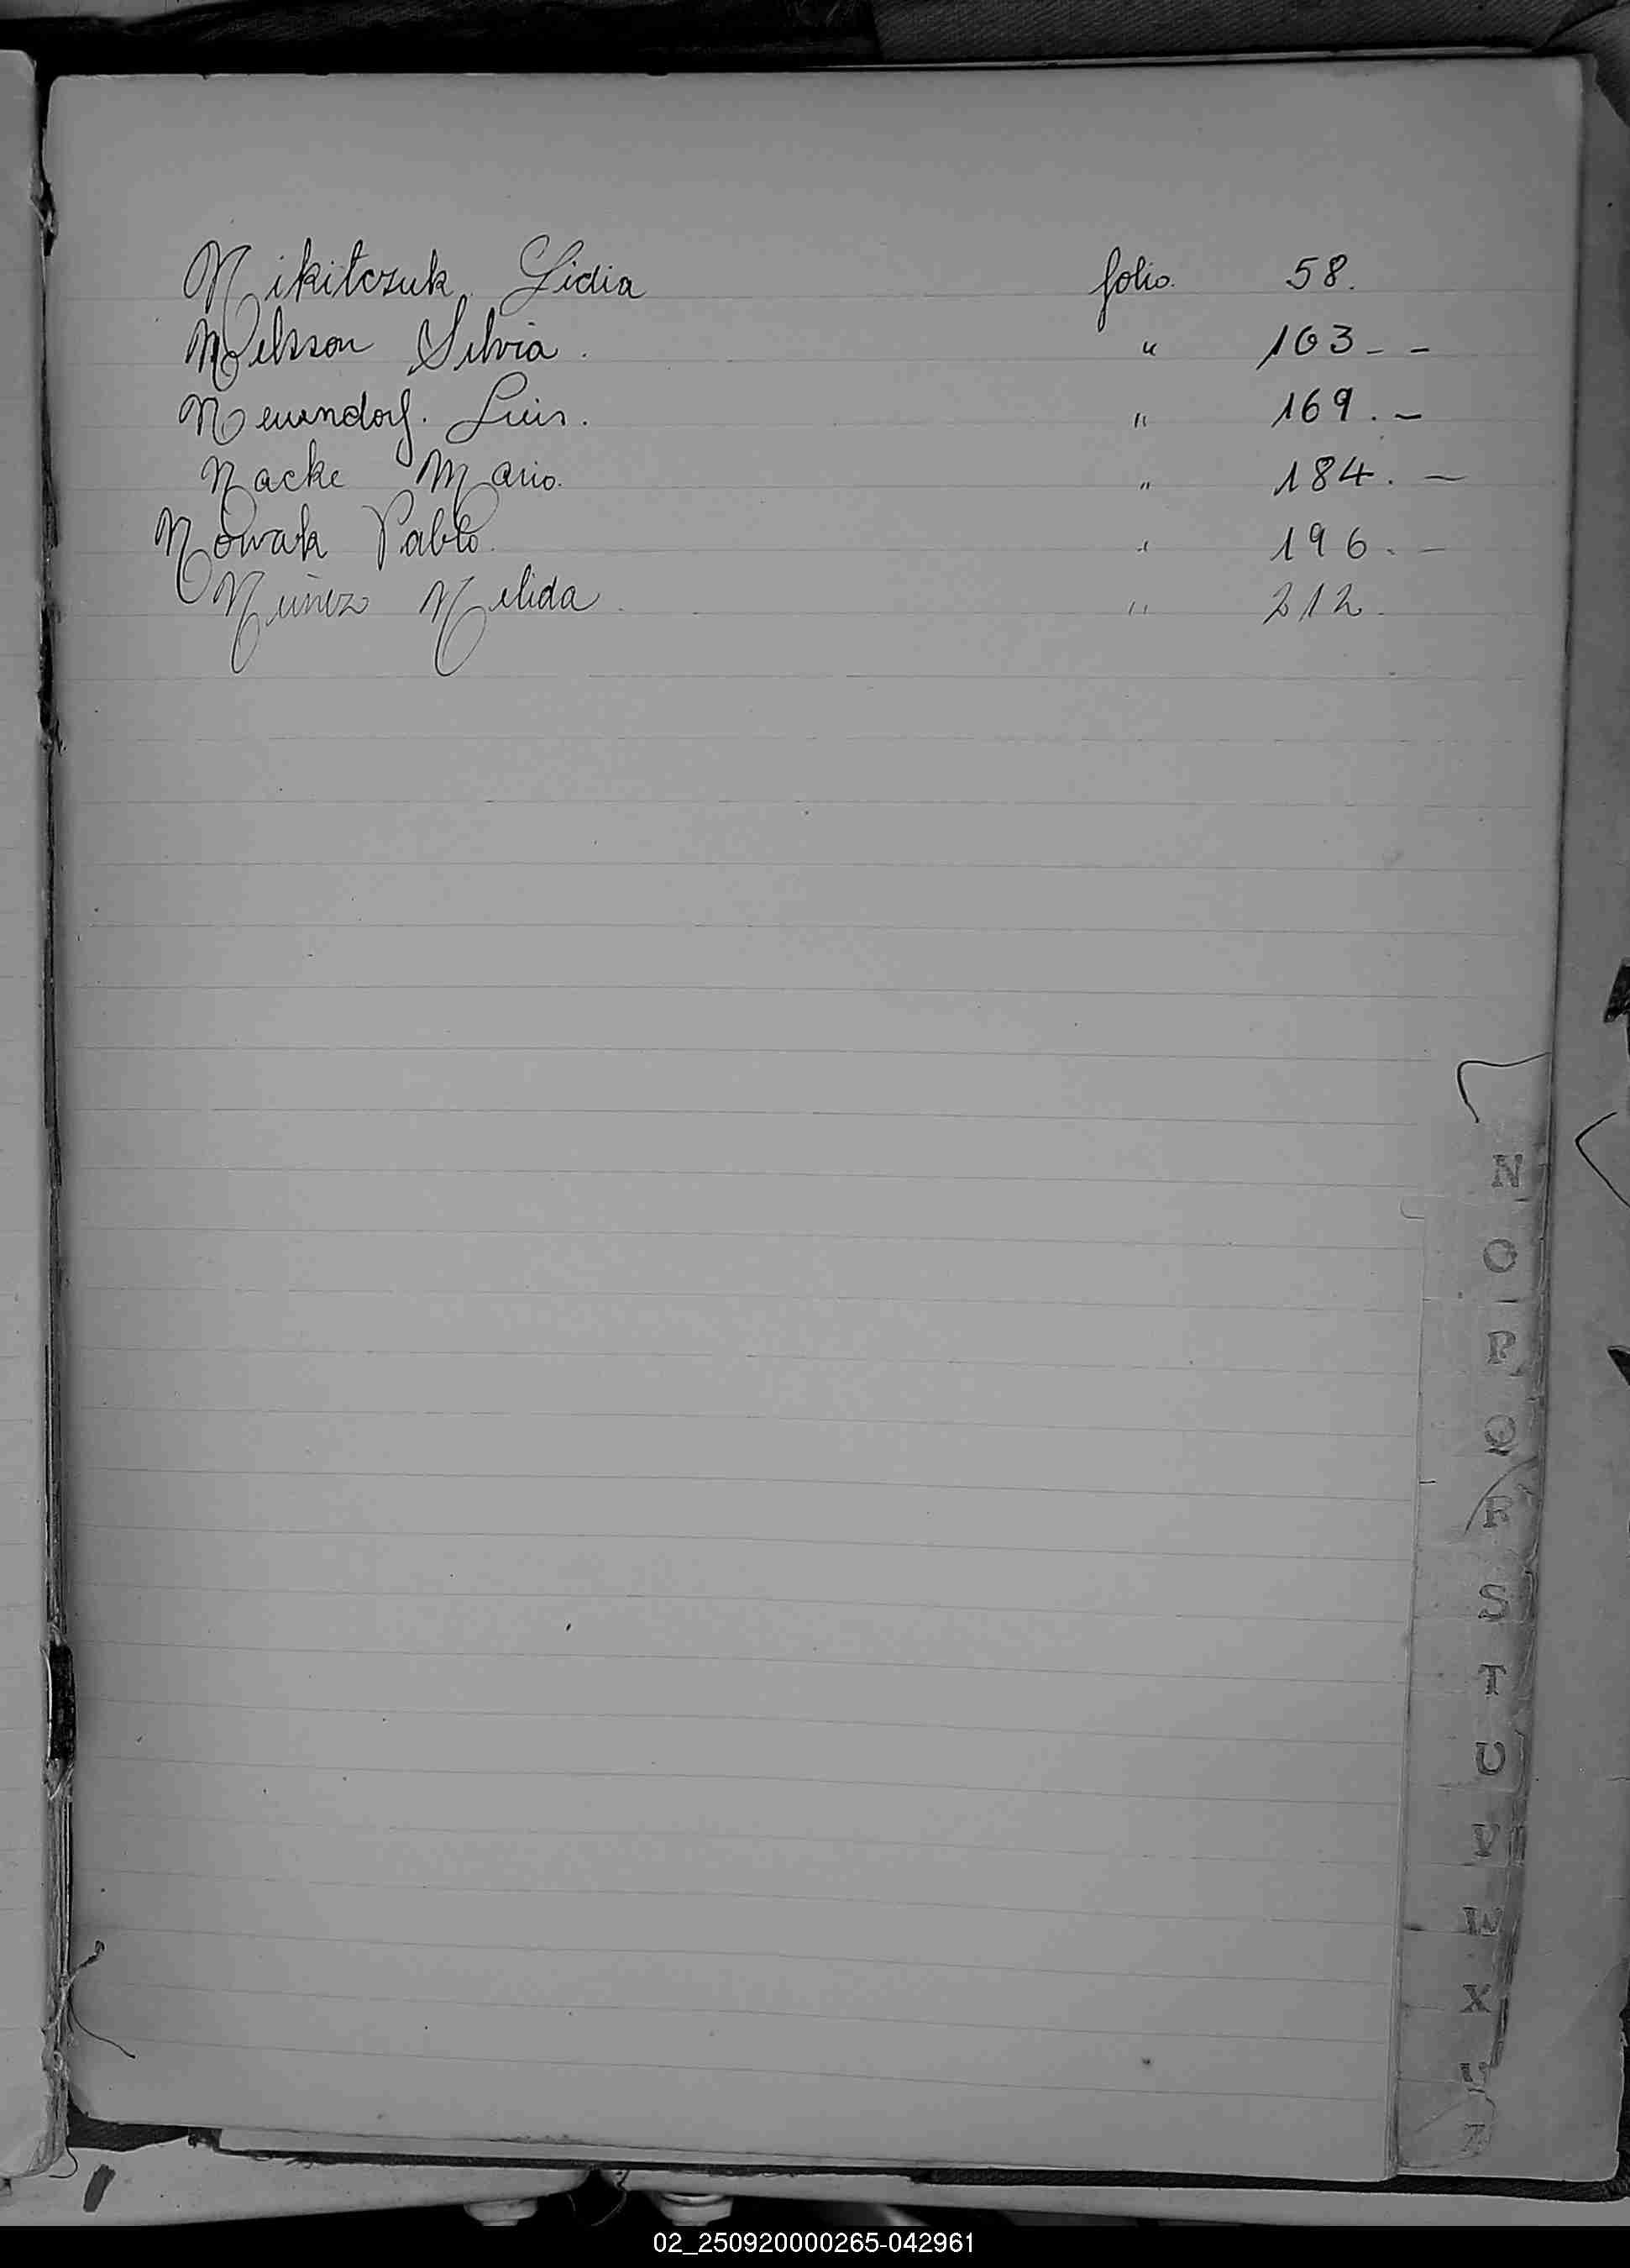 Nikitczuk Lidia folio. 58.
Nelsson Silvia. " 163 - -
Neuendorf. Luis. " 169. -
Nacke Mario. " 184. -
Nowak Pablo. " 196. -
Nuñez Nelida. " 212.
N
O
P
Q
R
S
T
U
V
W
X
Y
Z
02_250920000265-042961